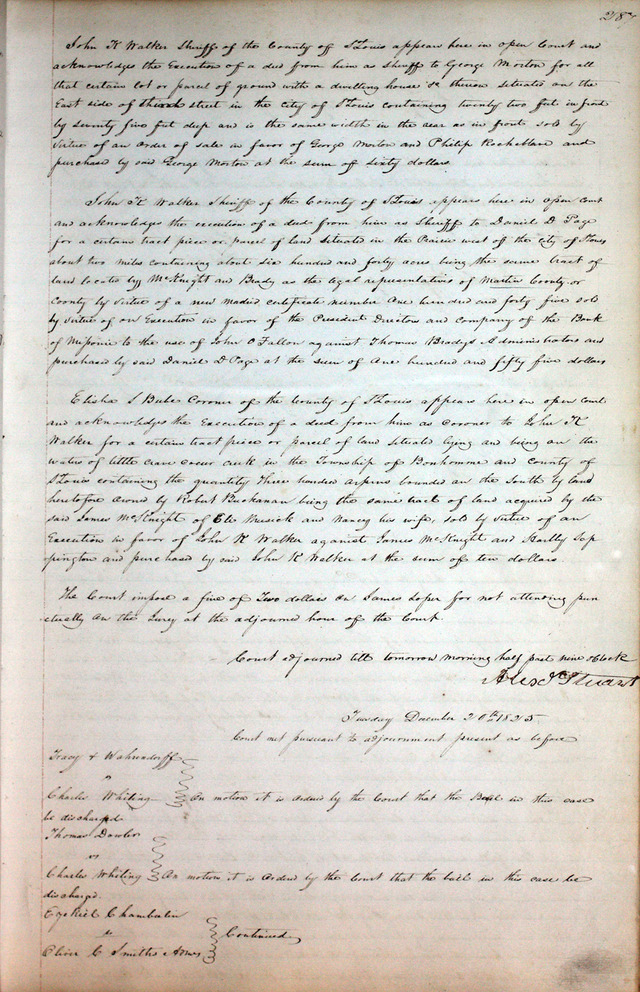 287
John K Walker Sheriff of the County of St Louis appears here in open Court and
acknowledges the Execution of a deed from him as sheriff to George Morton for all
that certain lot or parcel of ground with a dwelling house &c thereon situated on the
East side of third street in the city of St Louis containing twenty two feet in front
by seventy five feet deep and is the same width in the rear as in front sold by
virtue of an order of sale in favor of George Morton and Philip Rocheblave and
purchased by said George Morton at the sum of sixty dollars
John K Walker Sheriff of the County of St Louis appears here in open Court
and acknowledges the execution of a deed from him as Sheriff to Daniel D Page
for a certain tract piece or parcel of land situated in the Prairie west off the city of St Louis
about two miles containing about six hundred and forty acres being the same tract of
land located by McKnight and Brady as the legal representatives of Martin Coonty or
Coonty by virtue of a new madrid certificate number one hundred and forty five sold
by virtue of an Execution in favor of the President Directors and company of the Bank
of Missouri to the use of John O Fallon against Thomas Bradys Administrators and
purchased by said Daniel D Page at the sum of one hundred and fifty five dollars
Elisha S Bebe Coroner of the County of St Louis appears here in open court
and acknowledges the Execution of a deed from him as coroner to John K
Walker for a certain tract piece or parcel of land situated lying and being on the
waters of little crave coeur creek in the Township of Bonhomme and county of
St Louis containing the quantity three hundred arpens bounded on the South by land
heretofore owned by Robert Buchanan being the same tract of land acquired by the
said James McKnight of Musick and Nancy his wife, sold by virtue of an
Execution in favor of John K Walker against James McKnight and Hartly Sap
pington and purchased by said John K Walker at the sum of ten dollars
The Court impose a fine of Two dollars on James Loper for not attending pun
ctually on the Jury at the adjourned hour of the Court.
Court adjourned till tomorrow morning half past nine oclock
Alexr Stuart
Tuesday December 20th 1825
Court met pursuant to adjournment present as before
Tracy & Wahrendorff
vs
Charles Whiting On motion it is ordered by the Court that the Bail in this case
be discharged
Thomas Dawler
vs
Charles Whiting On motion it is ordered by the Court that the bail in this case be
discharged.
Ezekiel Chamberlin
vs
Continued
Oliver C Smiths Admrs